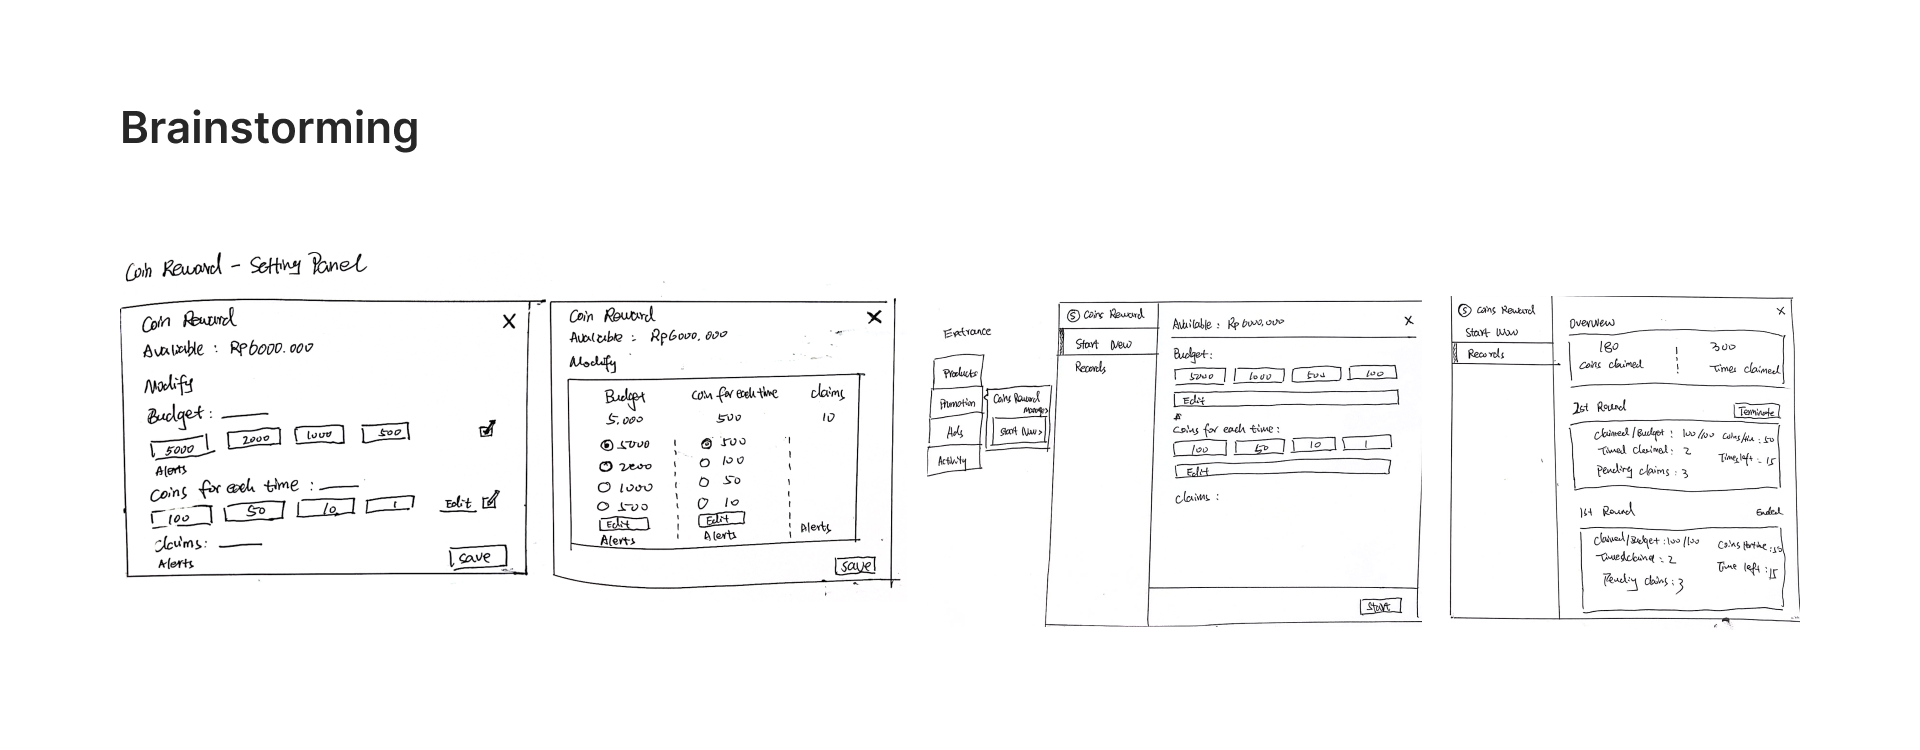 Brainstorming
Coin Reward - Setting Panel
Coin Reward X
Available : Rp6000.000
Modify
Budget :
5000 2000 1000 500
Alerts
Coins for each time :
100 50 10 1 Edit
Claims:
Alerts
save
Coin Reward X
Available : Rp6000.000
Modify
Budget coin for each time claims
5,000 500 10
5000 500
2000 100
1000 50
500 10
Edit Edit
Alerts Alerts Alerts
save
Entrance
Products
Promotion
Ads
Activity
Coins Reward
Start New >
S Coins Reward
Start New
Records
Available : Rp6000.000 X
Budget :
5000 1000 500 100
Edit
Coins for each time :
100 50 10 1
Edit
Claims :
Start
S Coins Reward
Start New
Records
X
Overview
180 300
Coins claimed Times claimed
2st Round Terminate
Claimed/Budget : 100/100 : 50
Timed claimed : 2 Times left : 15
Pending claims : 3
1st Round Ended
Claimed/Budget : 100/100
: 2 Time left : 15
Pending claims : 3